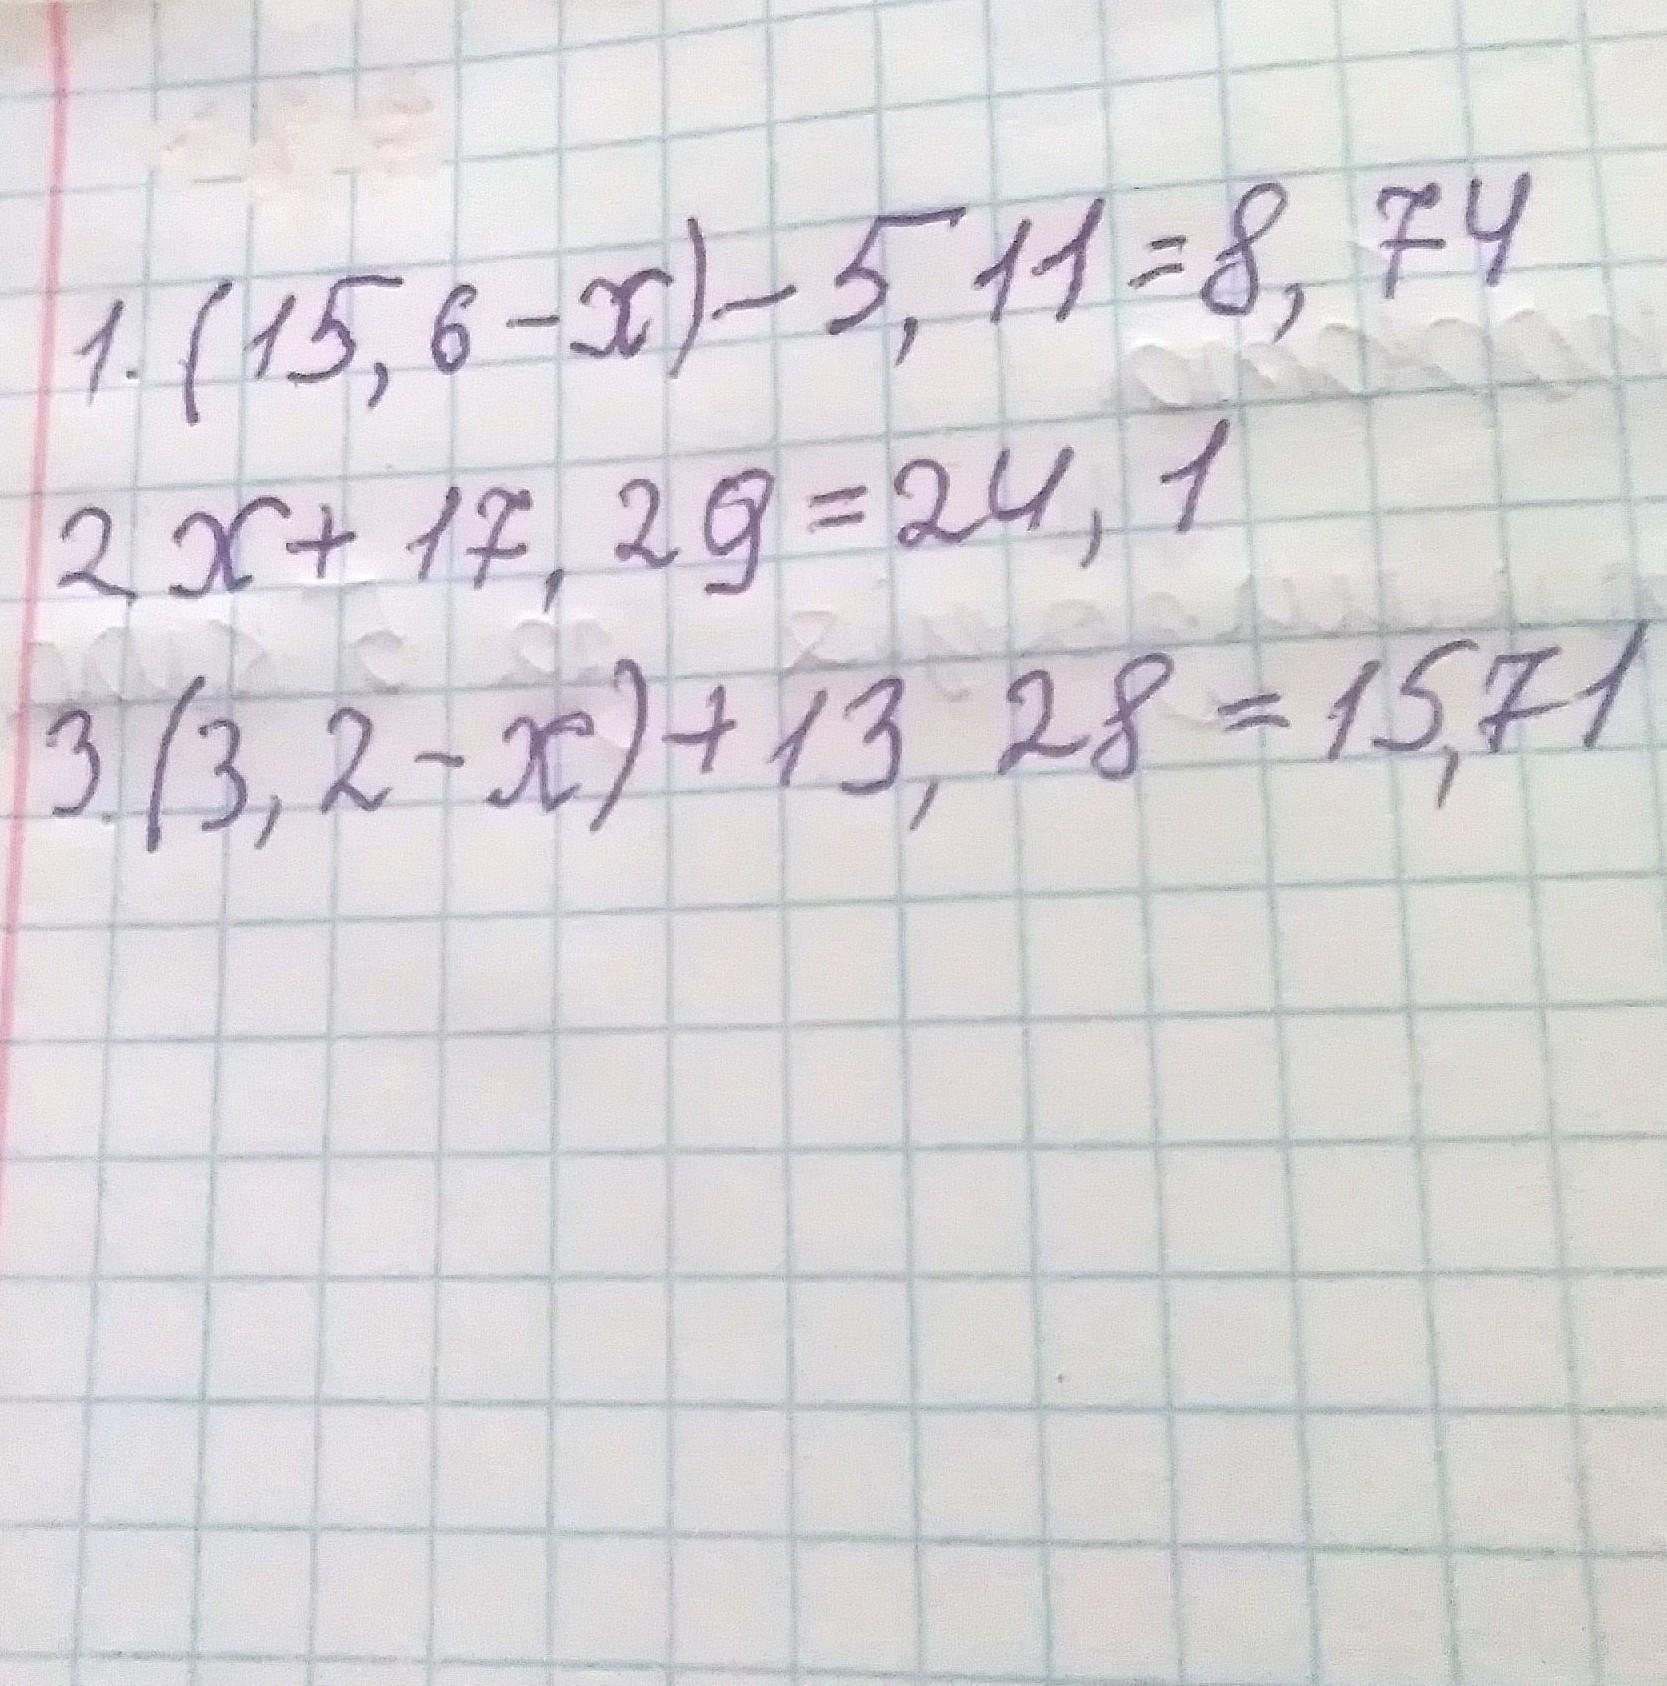 1. (15,6-x)-5,11=8,74
2. x+17,29=24,1
3. (3,2-x)+13,28=15,71